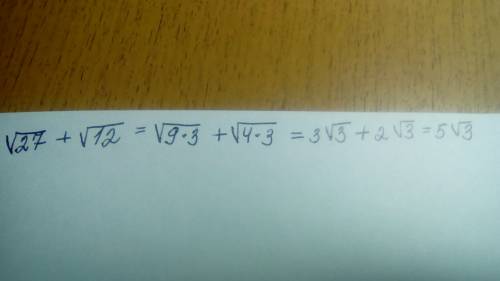 √27 + √12 = √9·3 + √4·3 = 3√3 + 2√3 = 5√3